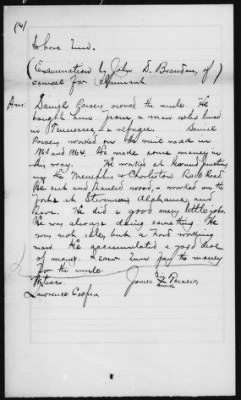 (4)
to have him.
(Examination by John D. Brandon, of
counsel for Claimant
Ans: Daniel owned the mule. He
bought him from a man who lived
in Tennessee, a refugee. Daniel
worked on the rail road in
1863 and 1864. He made some money in
this way. He worked at
the Memphis & Charleston Rail Road.
He cut and hauled wood, & worked on the
at Stevenson Alabama, and
here. He did a good many little jobs.
He was always doing something. He
was not idle, but a hard working
man. He accumulated a good deal
of money. I saw him pay the money
for the mule
Witness. James X
Lawrence Cooper mark